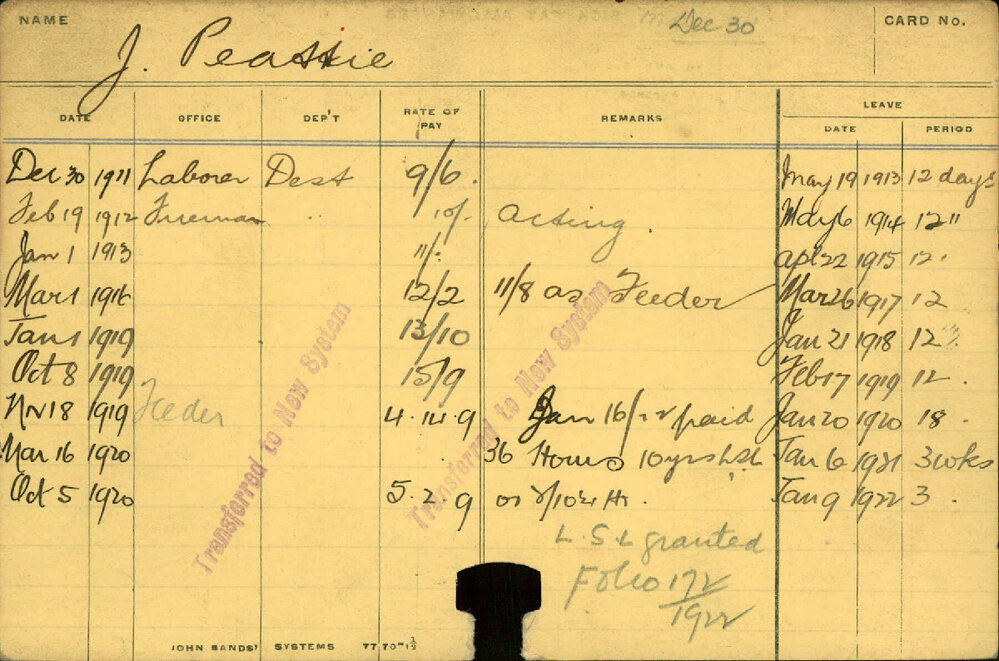 NAME
CARD No.
Dec 30
J. Peattie
DATE OFFICE DEP'T RATE OF PAY REMARKS LEAVE
DATE PERIOD
Dec 30 1911 Laborer Dest 9/6. May 19 1913 12 days
Feb 19 1912 Fireman " 10/- acting May 6 1914 12 "
Jan 1 1913 11/- apl 22 1915 12 "
Mar 1 1916 12/2 11/8 as Feeder Mar 26 1917 12
Jan 1 1919 13/10 Jan 21 1918 12 "
Oct 8 1919 15/9 Feb 17 1919 12 .
Nv 18 1919 Feeder 4.14.9 Jan 16/22 paid Jan 20 1920 18 .
Mar 16 1920 36 Hours 10 yrs Jan 6 1921 3 wks
Oct 5 1920 5.2.9 Jan 9 1922 3 .
L.S.L granted
Folio 172/1922
Transferred to New System
Transferred to New System
JOHN SANDS' SYSTEMS 77